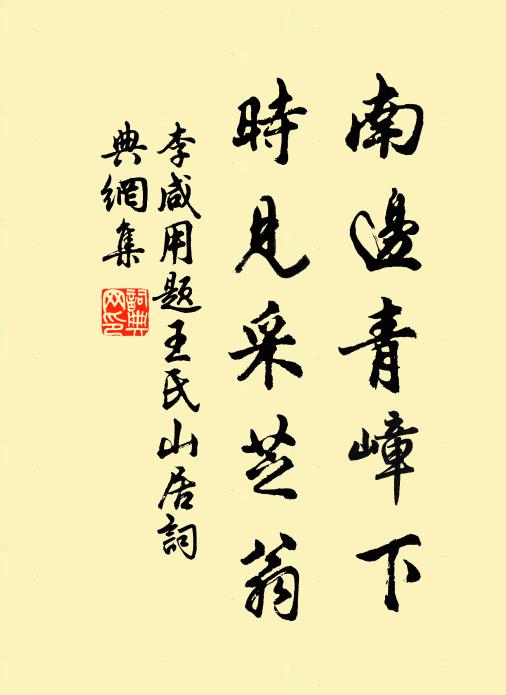 南邊青嶂下
時見采芝翁
李咸用題王氏山居詞
典網集
詞典
网印